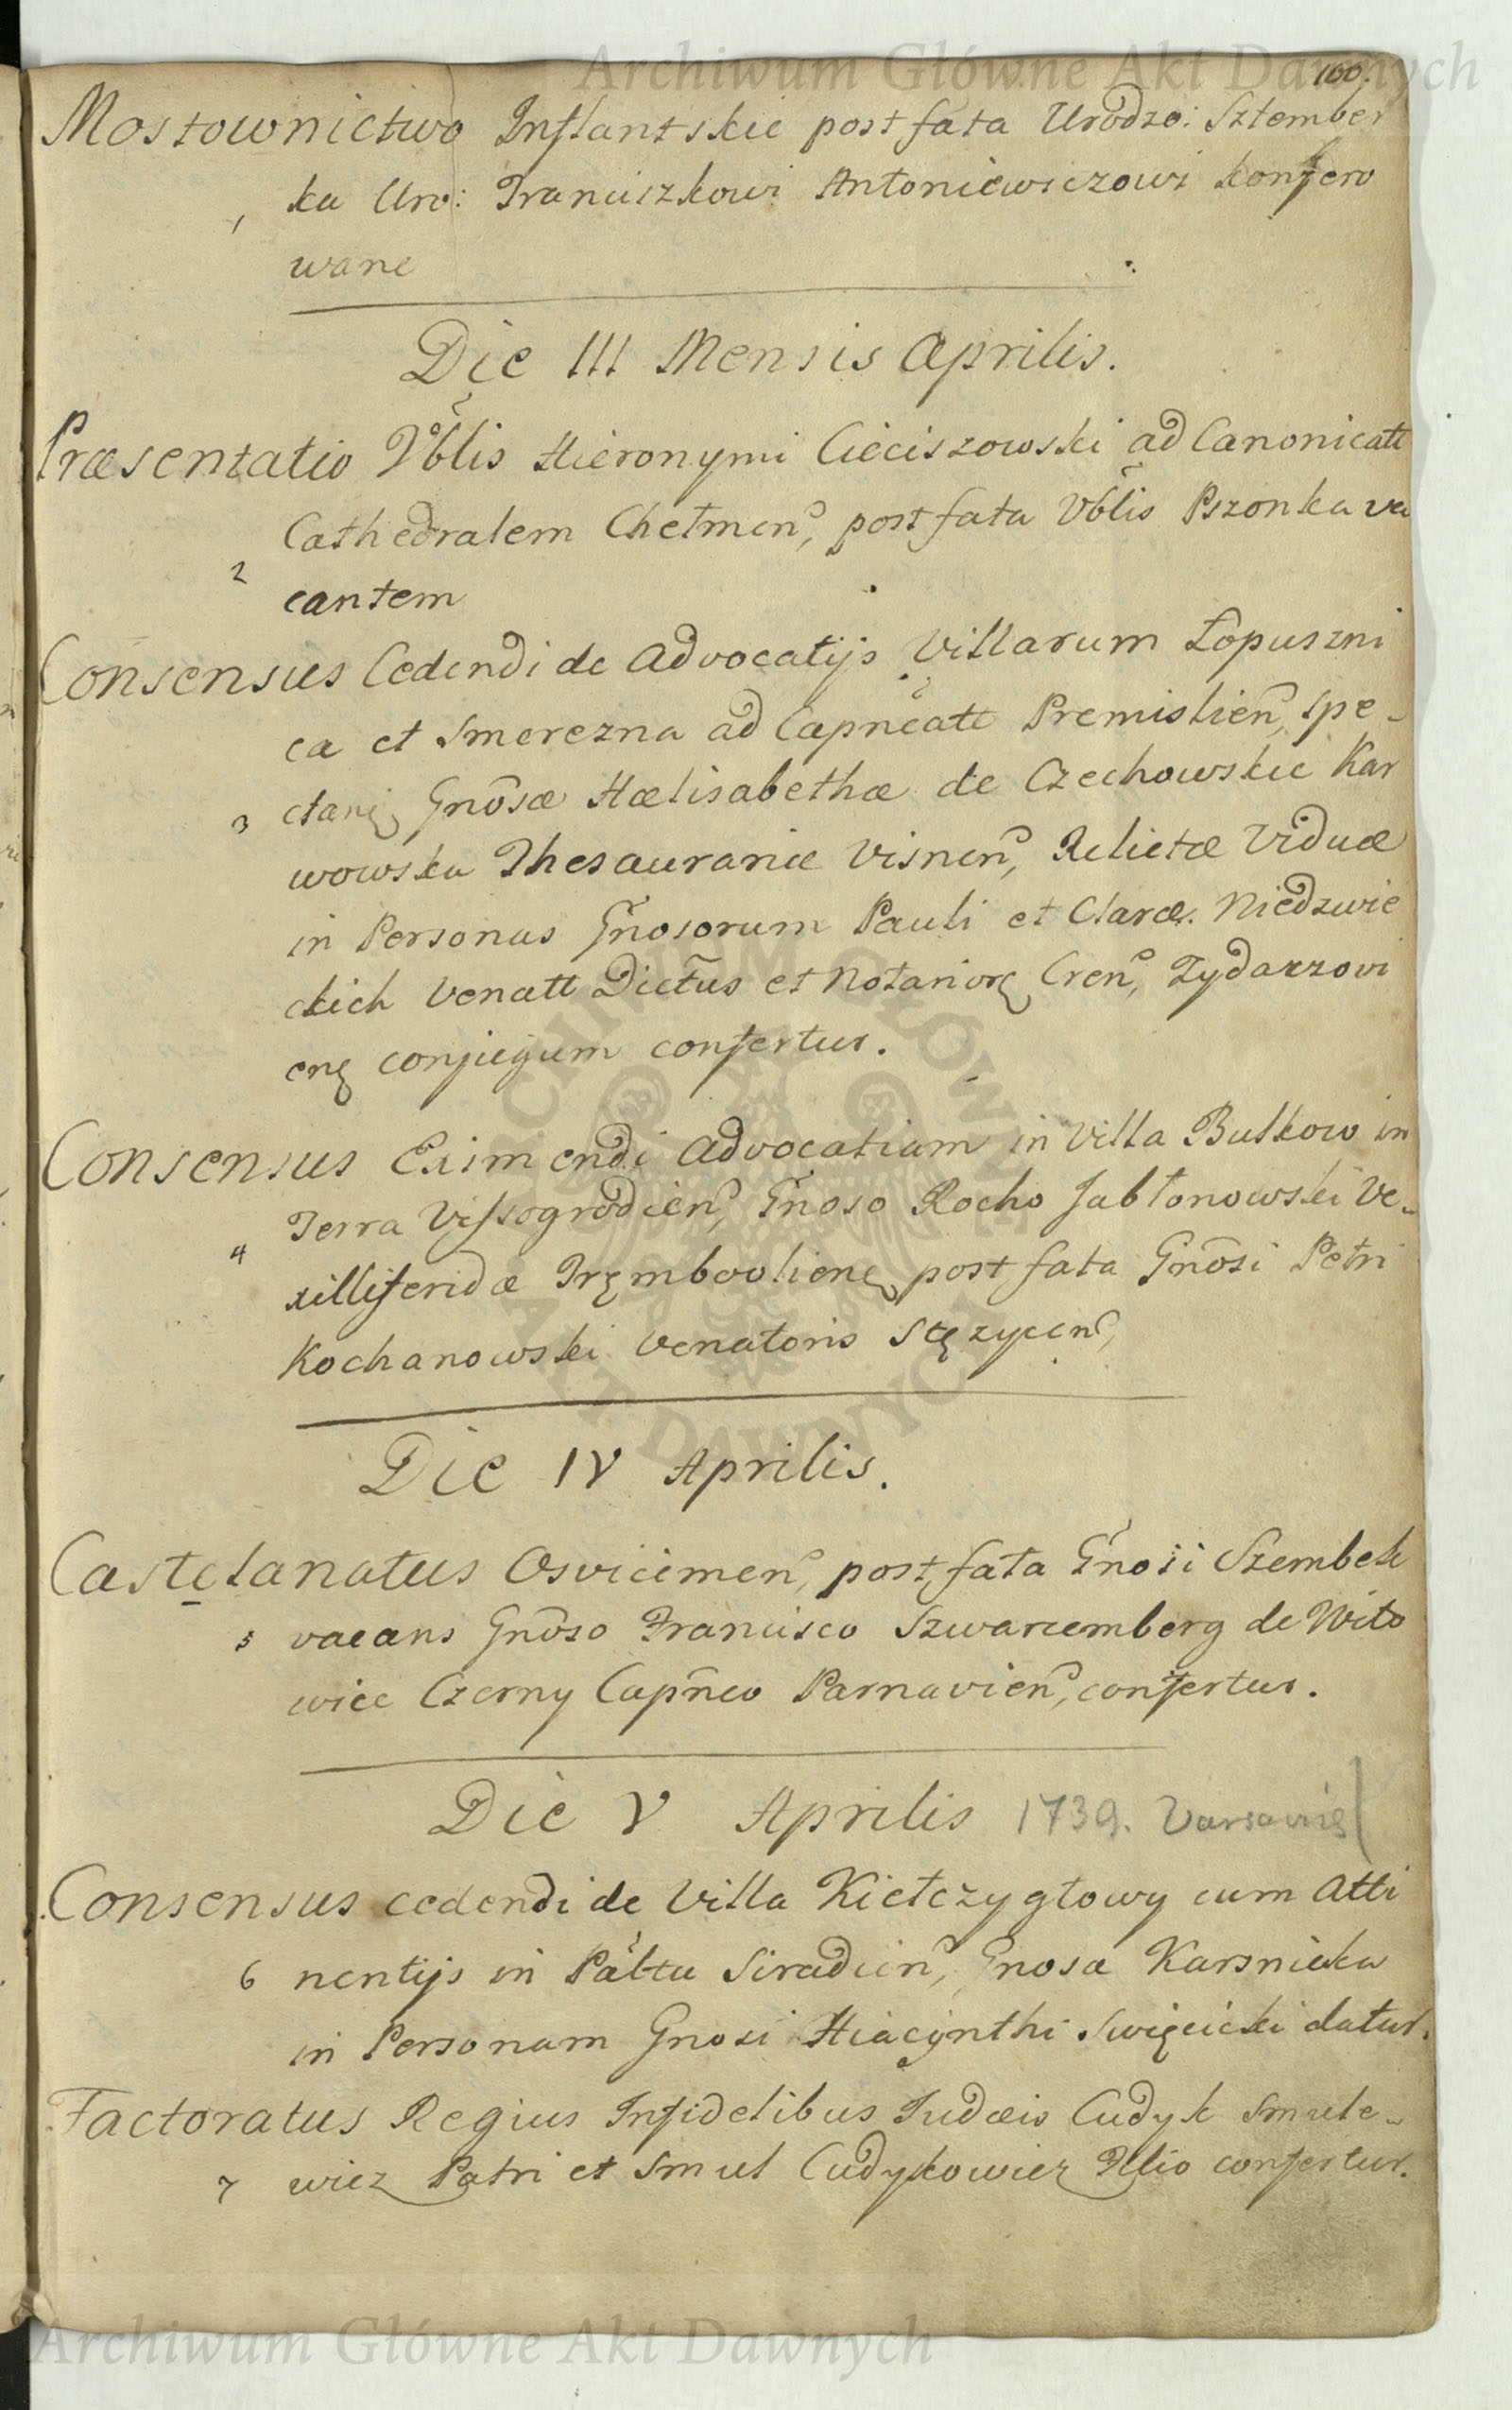 Archiwum Główne Akt Dawnych
160.
Mostownictwo Inflantskie post fata Urodzo: Sztember
ka Uro: Franciszkowi Antoniewiczowi konfero
1
wane
Die III Mensis Aprilis.
Præsentatio Vblis Hieronymi Cieciszowski ad Canonicatt
Cathedralem Chełmen, post fata Vblis Pszonka va
2
cantem
Consensus Cedendi de Advocatijs Villarum Łopuszni
ca et Smerezna ad Capneatt Premislien, spe-
3 ctanę, Gnosæ Hælisabethæ de Czechowskie Kar
wowska Thesaurariæ Visnen, Relictæ Viduæ
in Personas Gnosorum Pauli et Claræ Niedzwie
ckich Venatt Dictus et Notariorę Cren, Zydaczovi
enę conjugum confertur.
Consensus Eximendi Advocatiam in Villa Bulkow in
Terra Vissogrodien, Gnoso Rocho Jabłonowski Ve-
4
xilliferidæ Tręmbovlienę, post fata Gnosi Petri
Kochanowski Venatoris Stęzycen,
Die IV Aprilis.
Castelanatus Osviecimen, post fata Gnosi Szembek
5 vacans Gnoso Francisco Szwarcemberg de Wito
wice Czerny Capneo Parnavien, confertur.
Die V Aprilis 1739. Varsavię
Consensus cedendi de Villa Kiełczygłowy cum Atti
6 nentijs in Paltu Siradien, Gnosa Karsnicka
in Personam Gnosi Hiacynthi Swięcicki datur.
Factoratus Regius Infidelibus Judæis Cudyk Smule-
7 wicz Patri et Smul Cudykowicz Filio confertur.
ARCHIWUM GŁÓWNE AKT DAWNYCH
Archiwum Główne Akt Dawnych